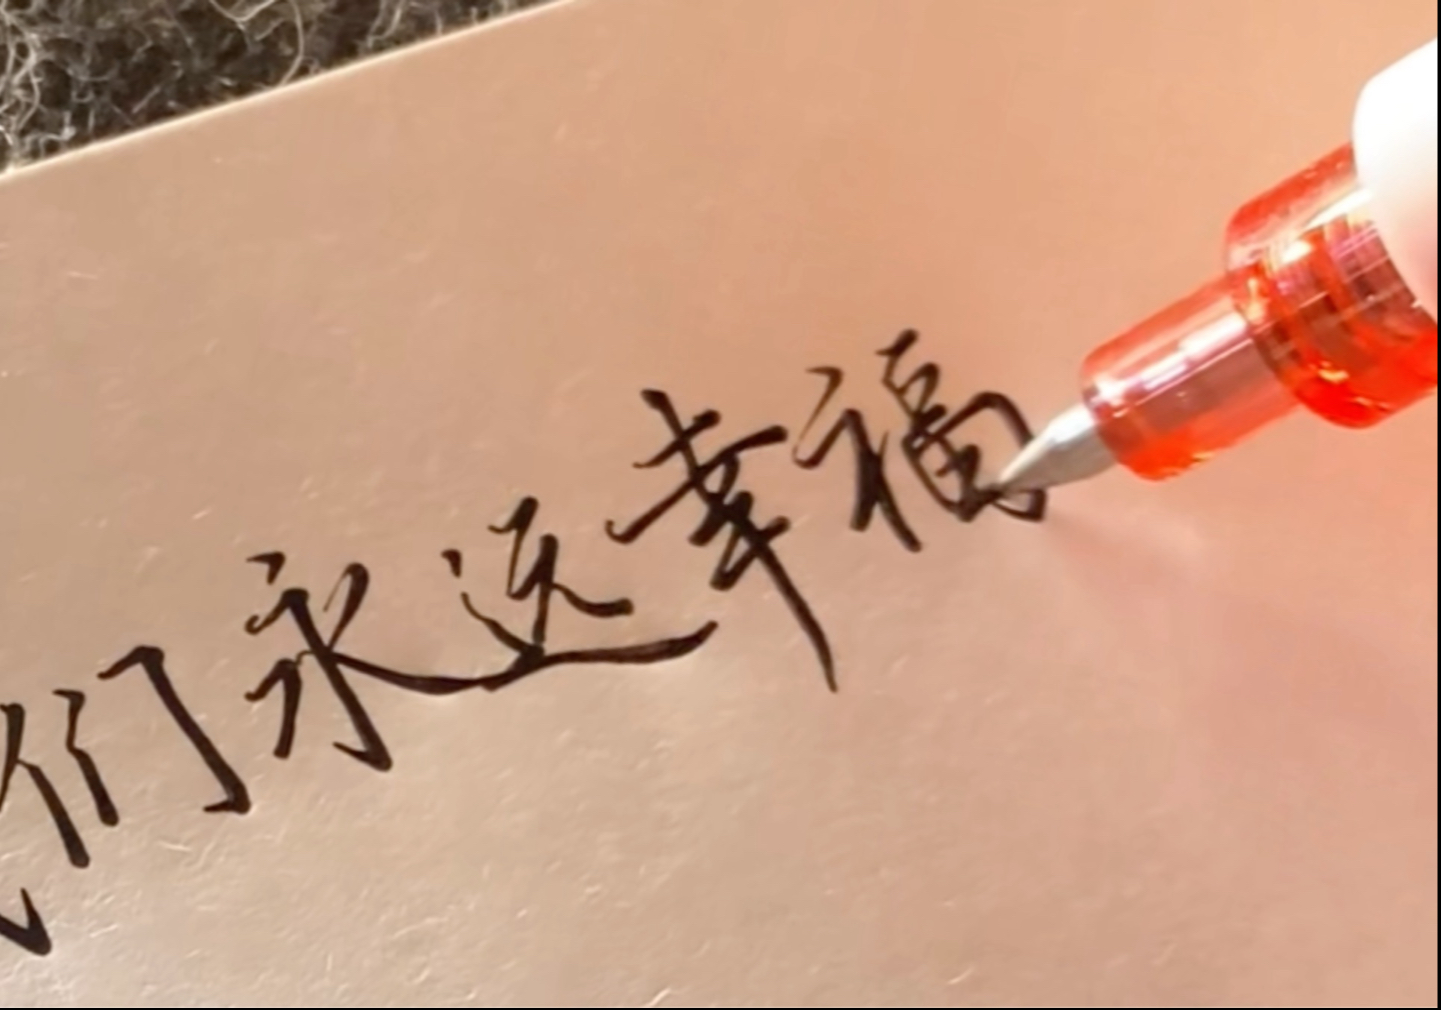 们永远幸福